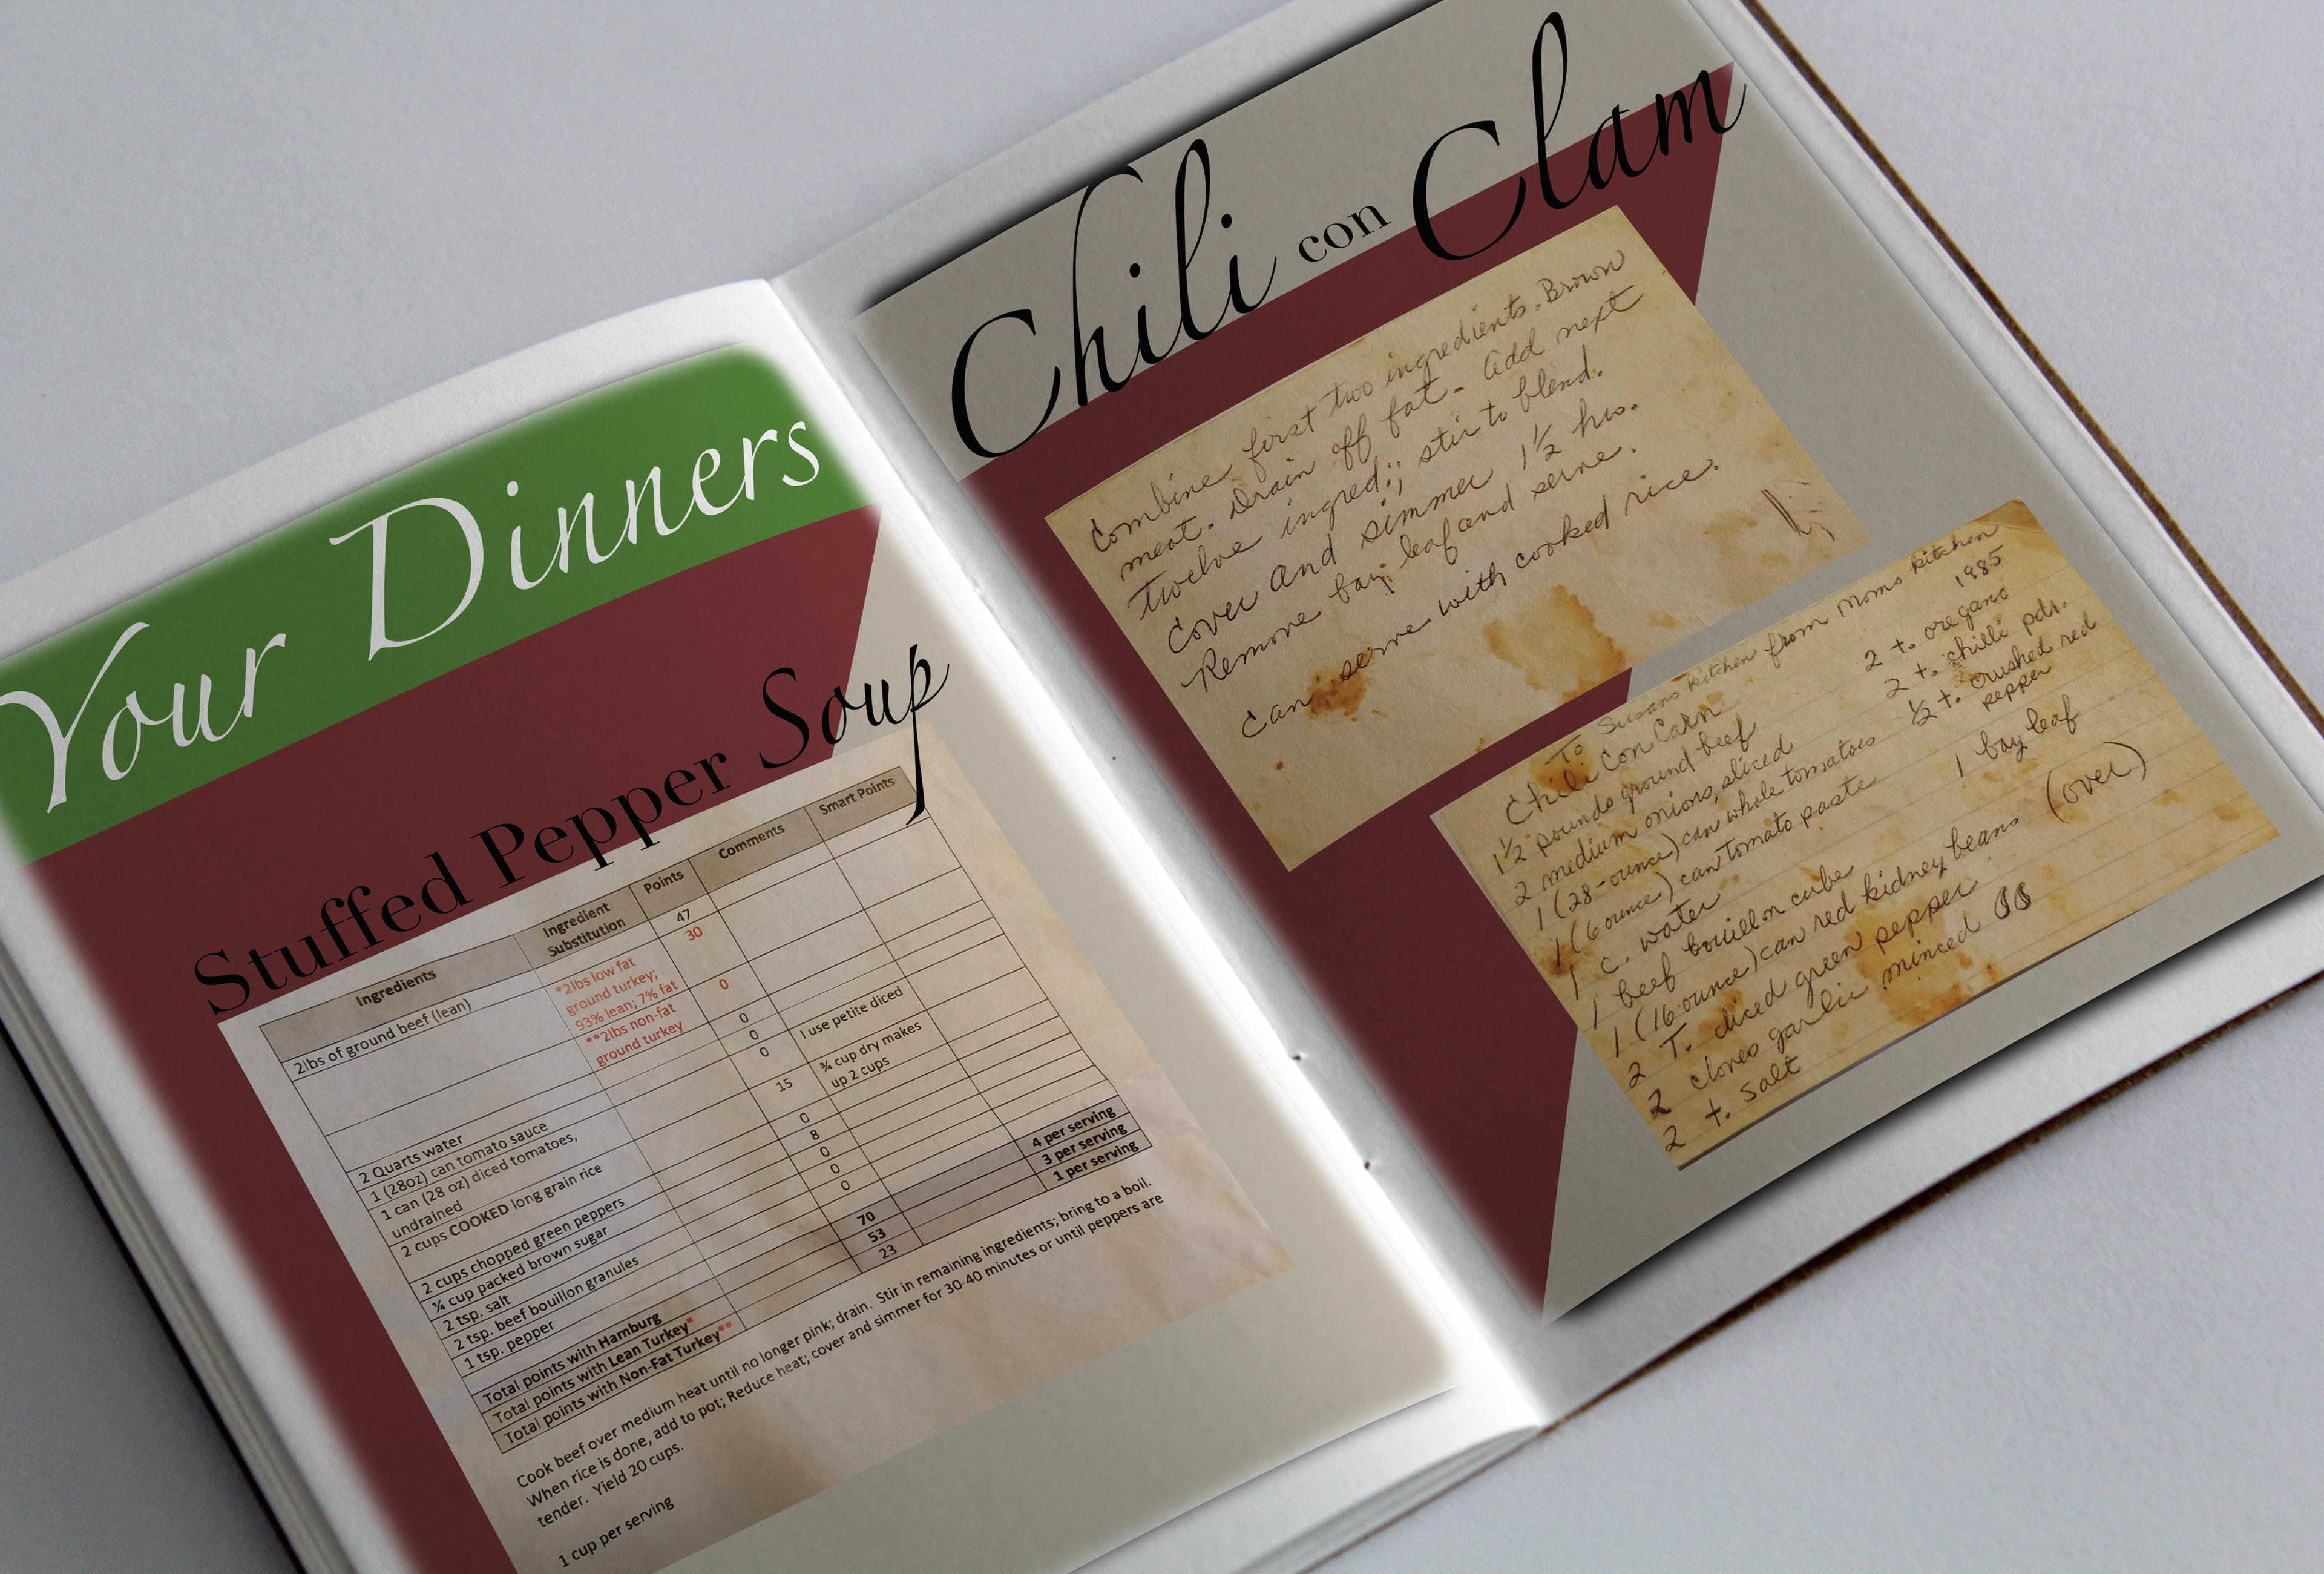 Your Dinners
Stuffed Pepper Soup
Ingredients Ingredient Substitution Points Comments Smart Points
2lbs of ground beef (lean) 47
*2lbs low fat ground turkey; 93% lean; 7% fat 30
**2lbs non-fat ground turkey 0
2 Quarts water 0
1 (28oz) can tomato sauce 0
1 can (28 oz) diced tomatoes, undrained 0 I use petite diced
2 cups COOKED long grain rice 15 ¾ cup dry makes up 2 cups
2 cups chopped green peppers 0
¼ cup packed brown sugar 8
2 tsp. salt 0
2 tsp. beef bouillon granules 0
1 tsp. pepper 0
Total points with Hamburg 70 4 per serving
Total points with Lean Turkey* 53 3 per serving
Total points with Non-Fat Turkey** 23 1 per serving
Cook beef over medium heat until no longer pink; drain. Stir in remaining ingredients; bring to a boil.
When rice is done, add to pot; Reduce heat; cover and simmer for 30-40 minutes or until peppers are
tender. Yield 20 cups.
1 cup per serving
Chili con Clam
Combine first two ingredients. Brown
meat. Drain off fat. Add next
twelve ingred.; stir to blend.
Cover and simmer 1½ hrs.
Remove bay leaf and serve.
Can serve with cooked rice.
To Susans kitchen from Moms kitchen
1985
Chili Con Carn
1½ pounds ground beef
2 medium onions, sliced
1 (28-ounce) can whole tomatoes
1 (6 ounce) can tomato paste
1 c. water
1 beef bouillon cube
1 (16 ounce) can red kidney beans
2 T. diced green pepper
2 cloves garlic minced
2 t. salt
2 t. oregano
2 t. chilli pdr.
½ t. crushed red
pepper
1 bay leaf
(over)